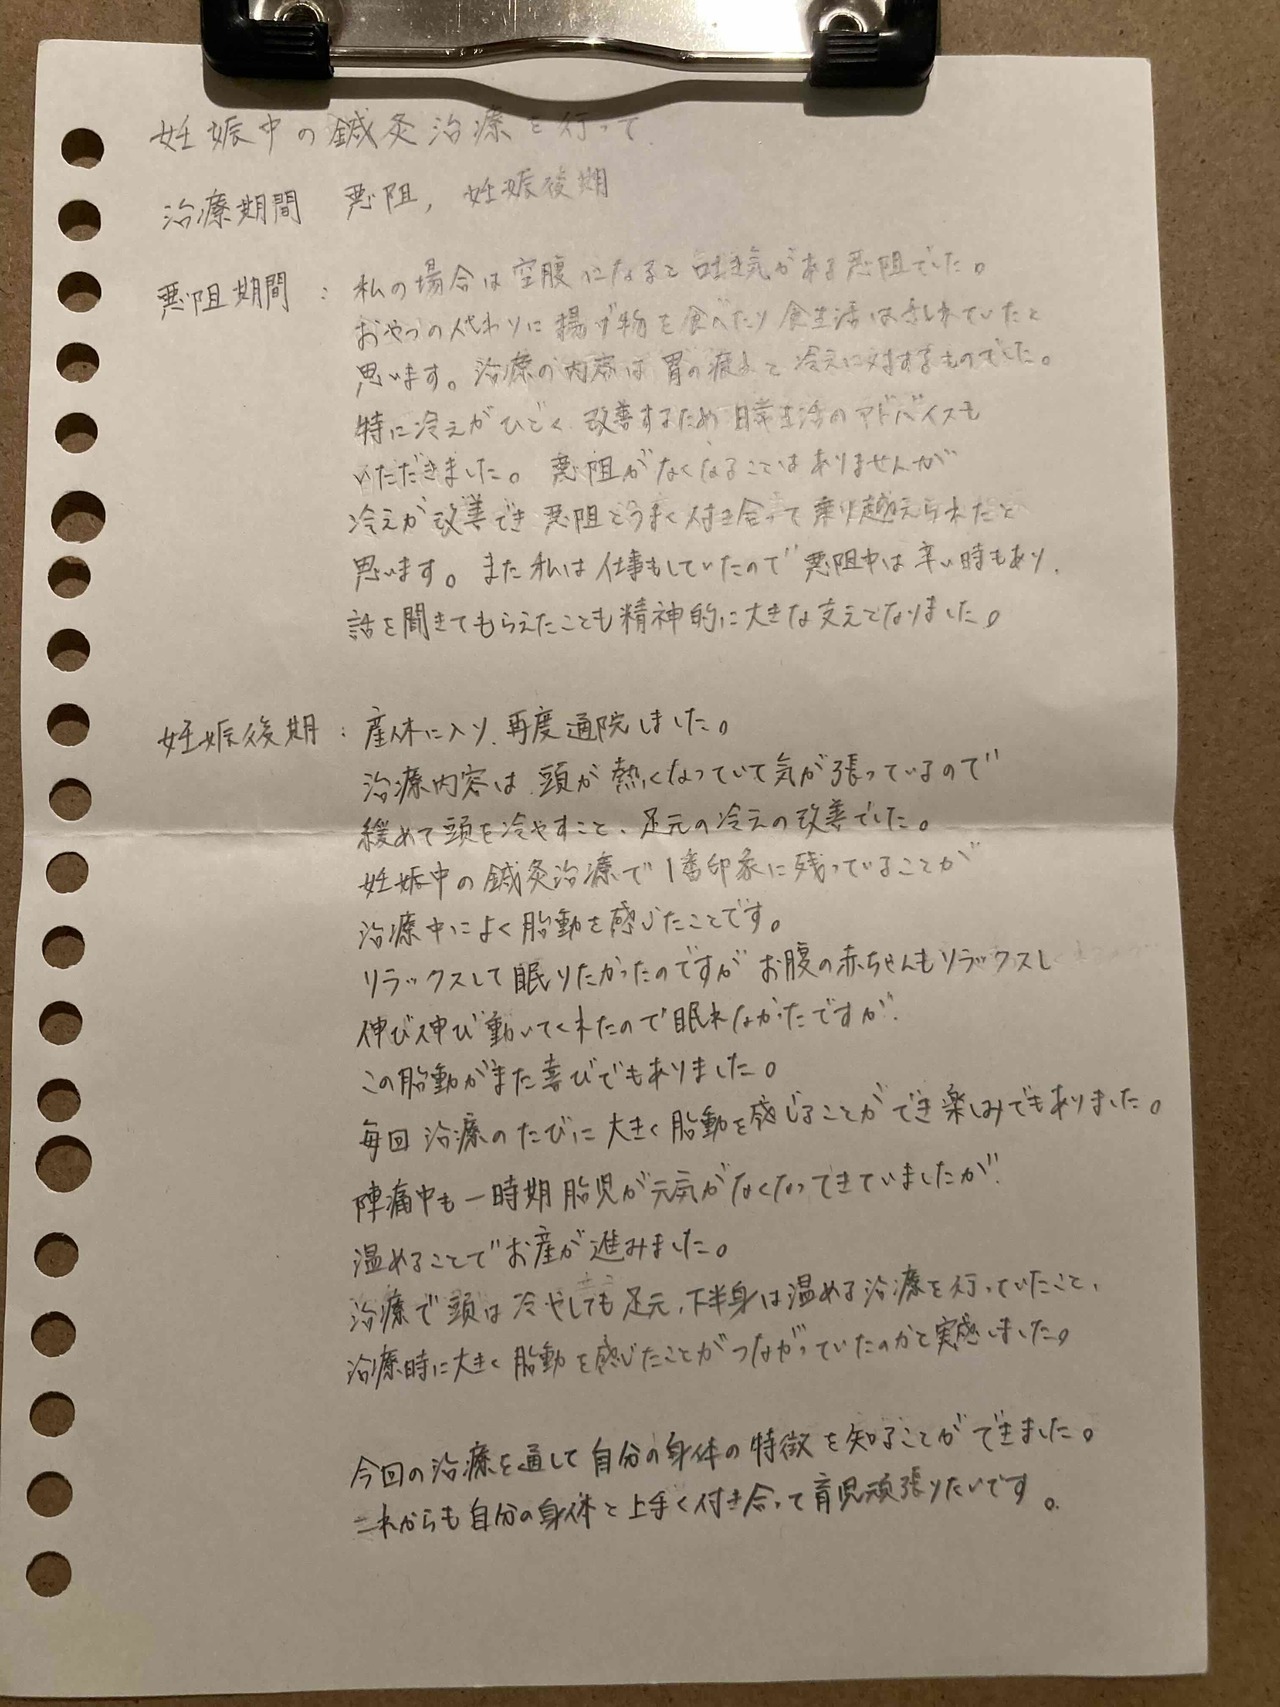 妊娠中の鍼灸治療を行って
治療期間 悪阻, 妊娠後期
悪阻期間: 私の場合は空腹になると吐き気がある悪阻でした。
おやつの代わりに揚げ物を食べたり食生活は乱れていたと
思います。治療の内容は胃の疲れと冷えに対するものでした。
特に冷えがひどく改善するため日常生活のアドバイスも
いただきました。悪阻がなくなることはありませんが
冷えが改善でき悪阻とうまく付き合って乗り越えられたと
思います。また私は仕事もしていたので悪阻中は辛い時もあり、
話を聞きてもらえたことも精神的に大きな支えとなりました。
妊娠後期: 産休に入り、再度通院しました。
治療内容は、頭が熱くなっていて気が張っているので
緩めて頭を冷やすこと、足元の冷えの改善でした。
妊娠中の鍼灸治療で1番印象に残っていることが
治療中によく胎動を感じたことです。
リラックスして眠りたかったのですがお腹の赤ちゃんもリラックスし
伸び伸び動いてくれたので眠れなかたですが、
この胎動がまた喜びでもありました。
毎回治療のたびに大きく胎動を感じることができ楽しみでもありました。
陣痛中も一時期胎児が元気がなくなってきていましたが、
温めることでお産が進みました。
治療で頭は冷やしても足元、下半身は温める治療を行っていたこと、
治療時に大きく胎動を感じたことがつながっていたのかと実感しました。
今回の治療を通して自分の身体の特徴を知ることができました。
これからも自分の身体と上手く付き合って育児頑張りたいです。